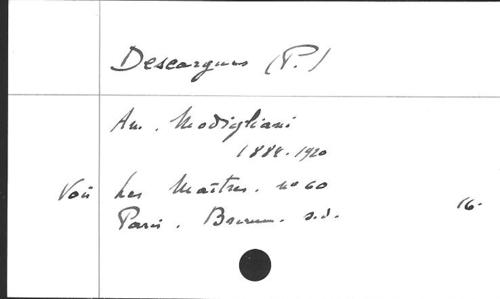 Descargues (P.)
Am. Modigliani
1884-1920
Voir Les Maîtres. no 60
Paris. Braun. s.d. 16.